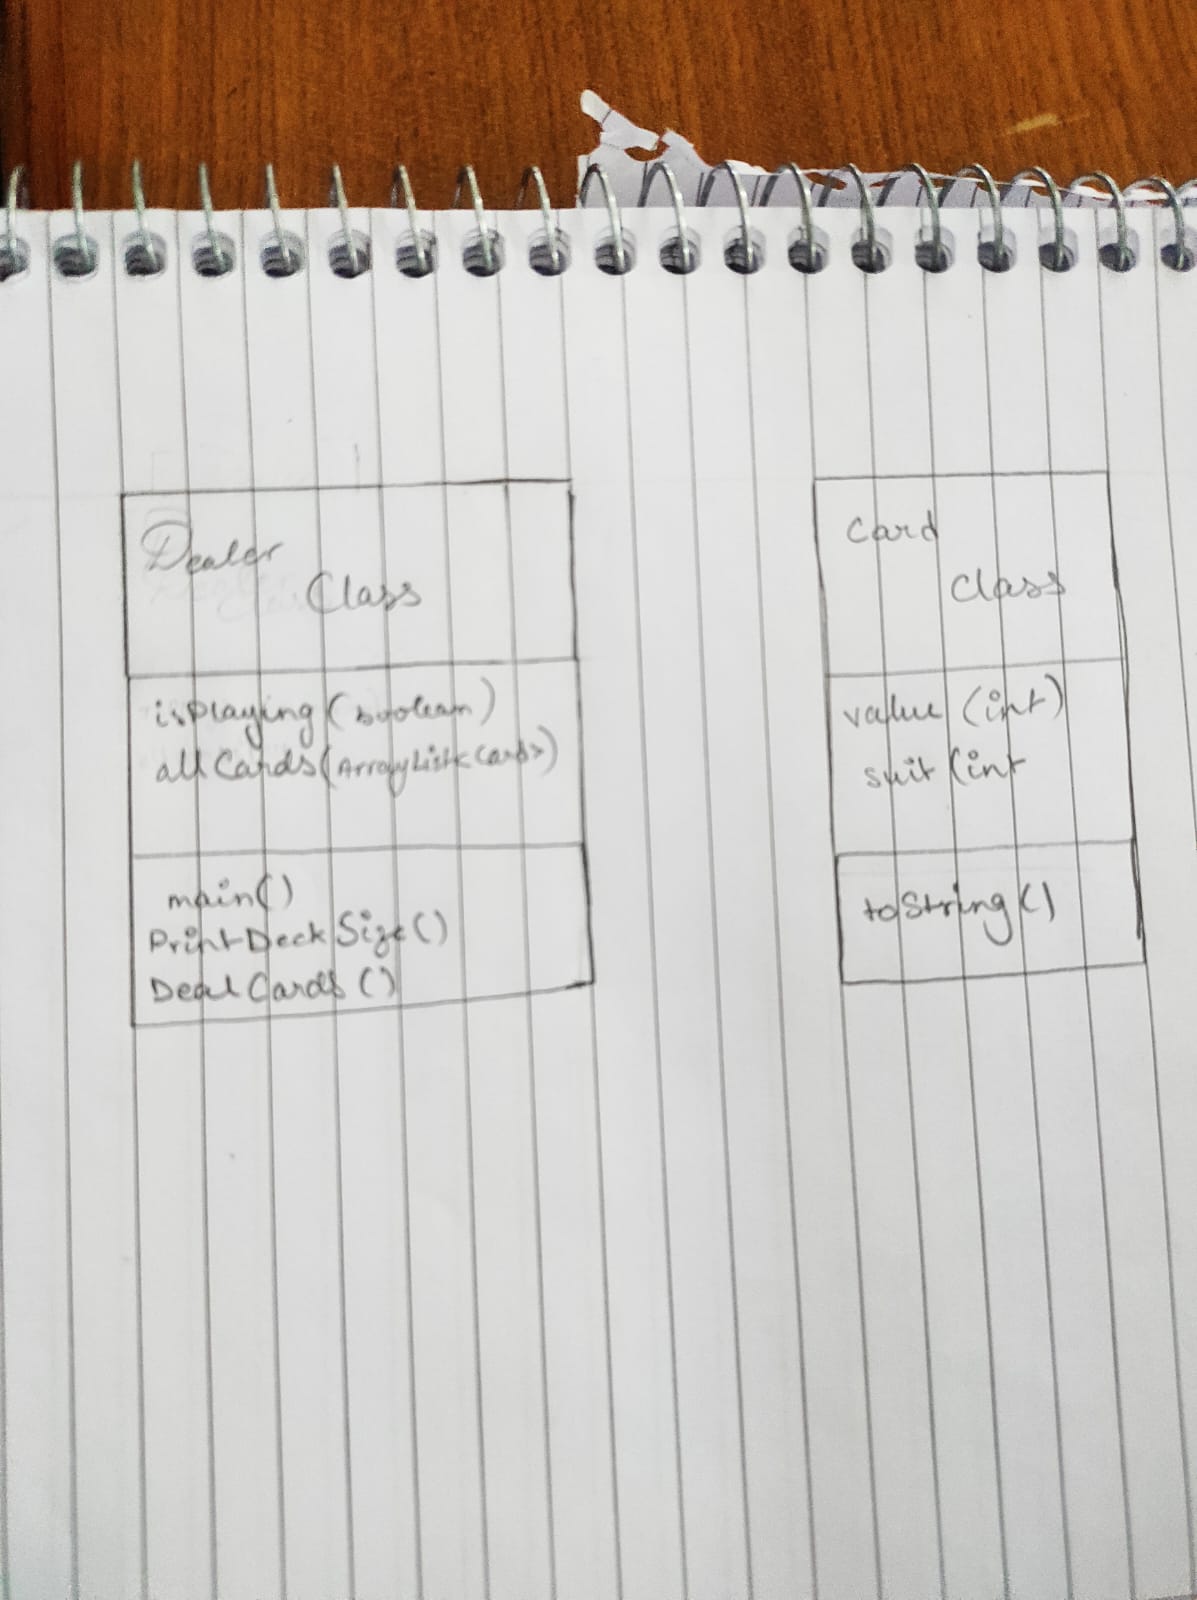 Dealer
Class
isPlaying (boolean)
allCards (ArrayList<Cards>)
main()
PrintDeckSize()
DealCards ()
Card
Class
value (int)
suit (int
toString()